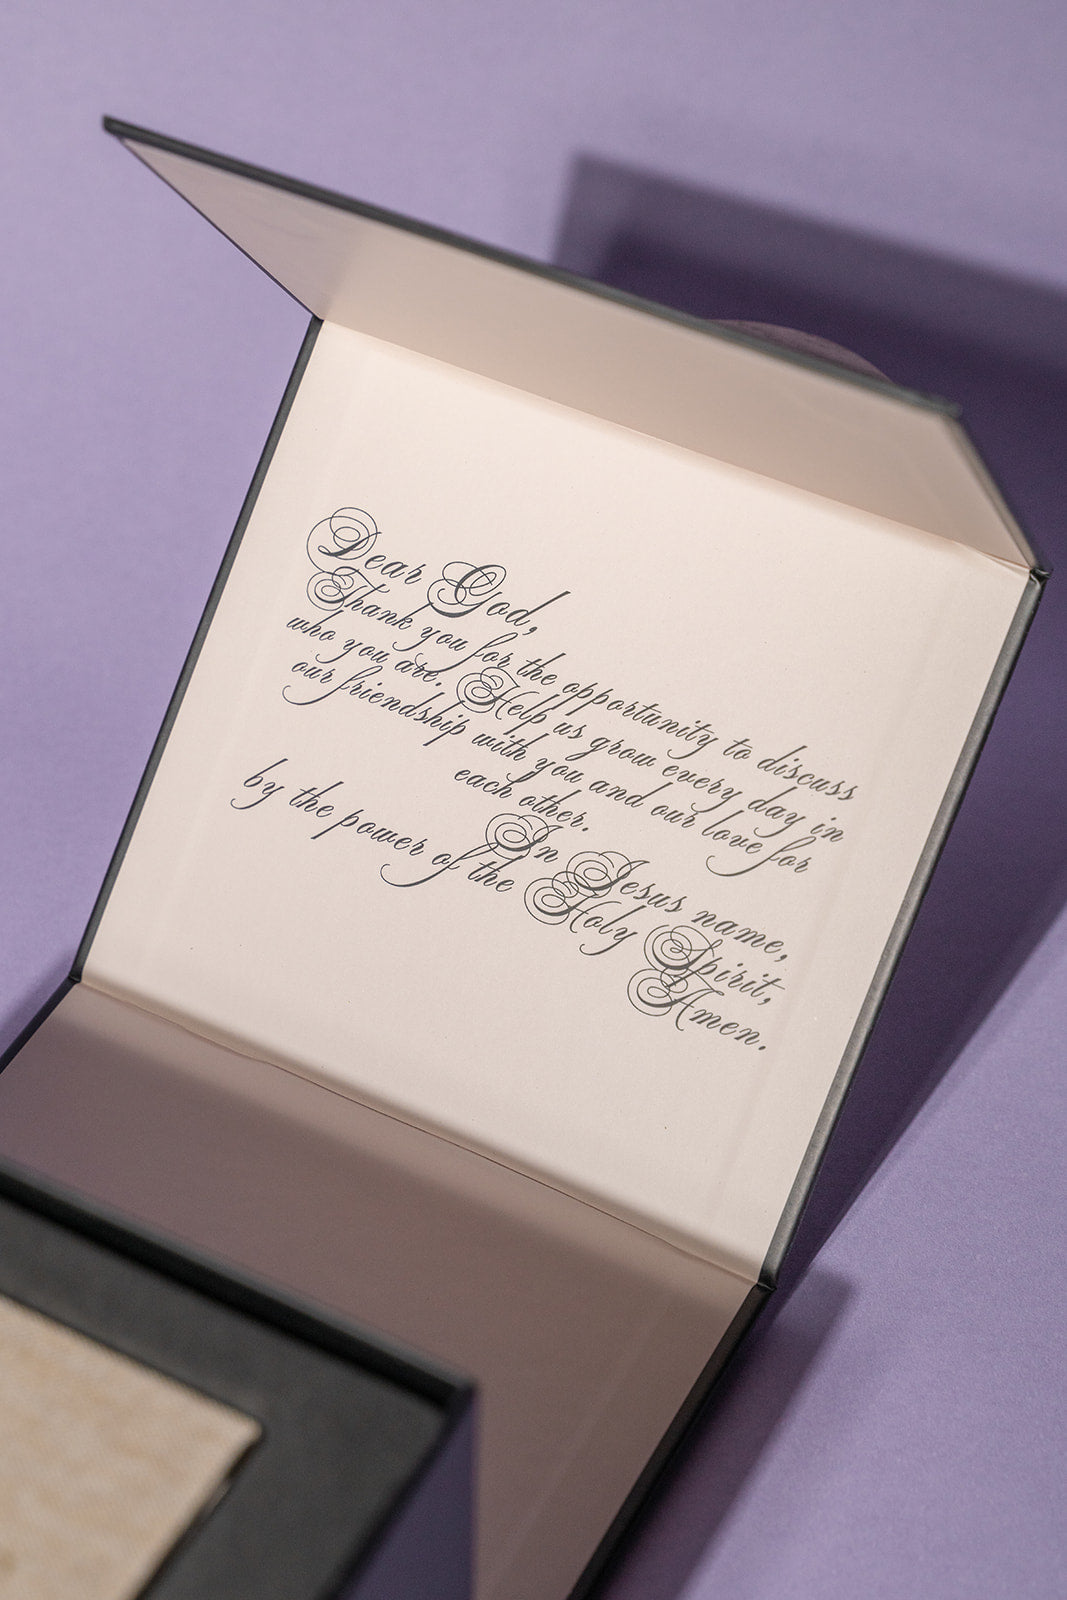 Dear God,
Thank you for the opportunity to discuss
who you are. Help us grow every day in
our friendship with you and our love for
each other.
In Jesus name,
by the power of the Holy Spirit,
Amen.